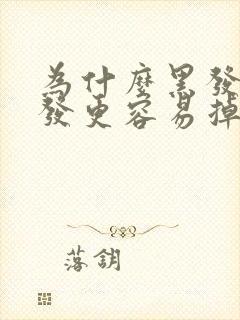 為什麼黑發
發更容易掉
落鈅